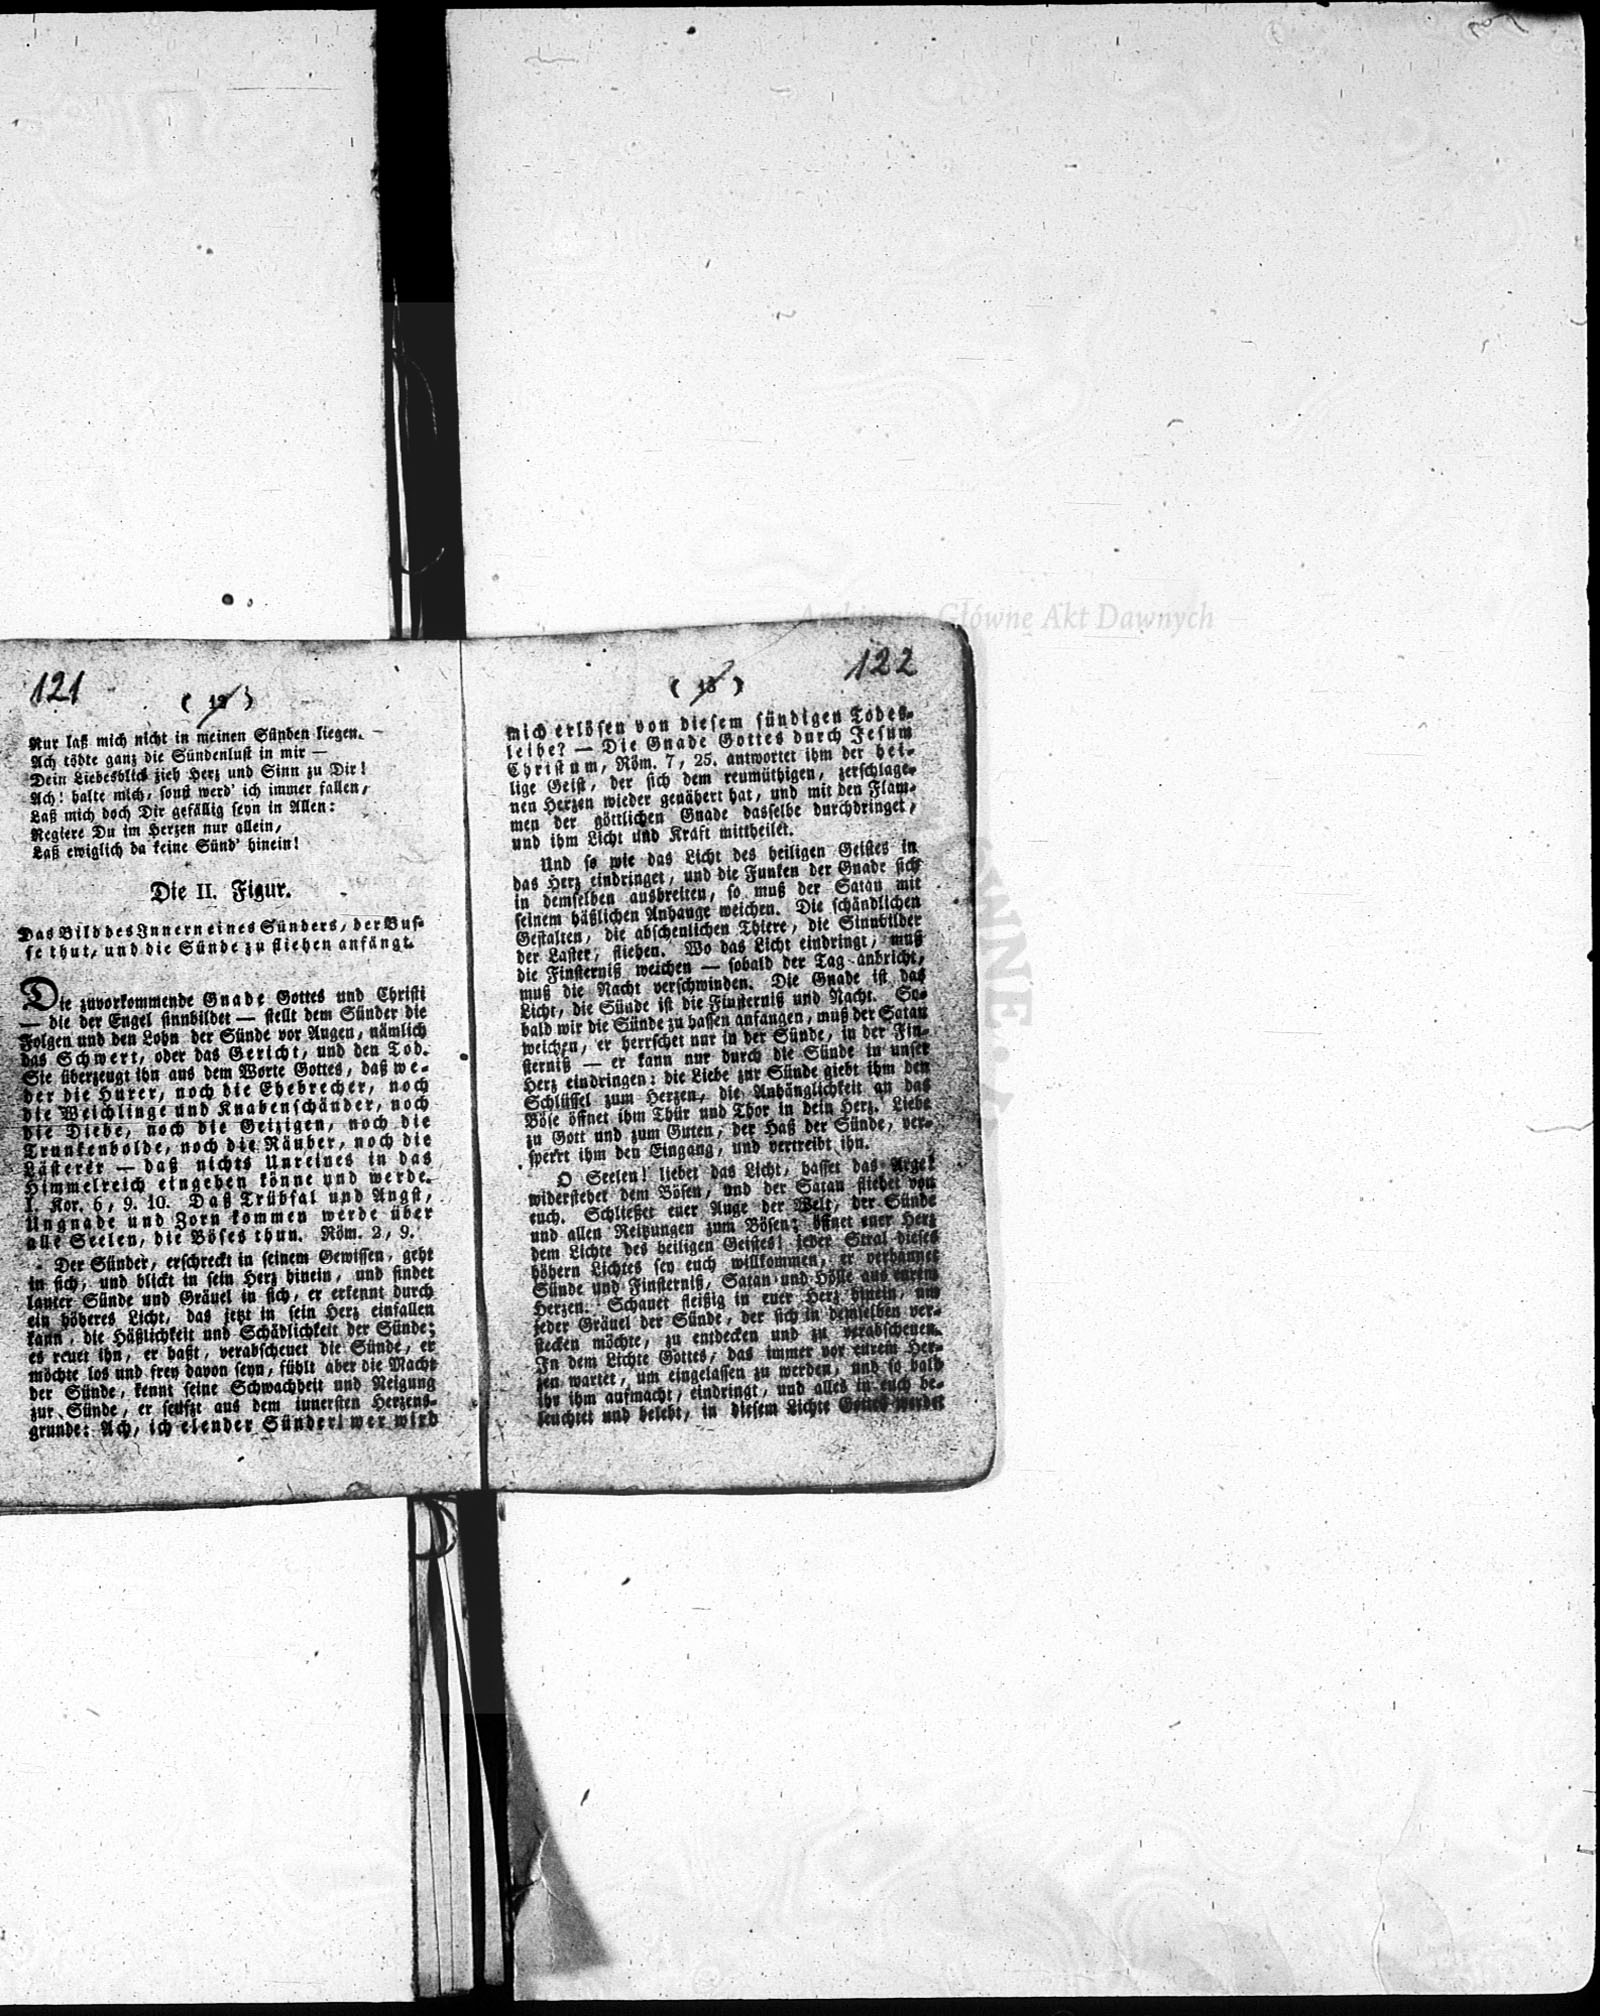 121
( 12 )
Nur laß mich nicht in meinen Sünden liegen.
Ach tödte ganz die Sündenlust in mir —
Dein Liebesblick zieh Herz und Sinn zu Dir!
Ach! halte mich, sonst werd' ich immer fallen,
Laß mich doch Dir gefällig seyn in Allen:
Regiere Du im Herzen nur allein,
Laß ewiglich da keine Sünd' hinein!
Die II. Figur.
Das Bild des Innern eines Sünders, der Bus-
se thut, und die Sünde zu fliehen anfängt.
Die zuvorkommende Gnade Gottes und Christi
— die der Engel sinnbildet — stellt dem Sünder die
Folgen und den Lohn der Sünde vor Augen, nämlich
das Schwert, oder das Gericht, und den Tod.
Sie überzeugt ihn aus dem Worte Gottes, daß we-
der die Hurer, noch die Ehebrecher, noch
die Weichlinge und Knabenschänder, noch
die Diebe, noch die Geizigen, noch die
Trunkenbolde, noch die Räuber, noch die
Lästerer — daß nichts Unreines in das
Himmelreich eingehen könne und werde.
1. Kor. 6, 9. 10. Daß Trübsal und Angst,
Ungnade und Zorn kommen werde über
alle Seelen, die Böses thun. Röm. 2, 9.
Der Sünder, erschreckt in seinem Gewissen, geht
in sich, und blickt in sein Herz hinein, und findet
lauter Sünde und Gräuel in sich, er erkennt durch
ein höheres Licht, das jetzt in sein Herz einfallen
kann, die Häßlichkeit und Schädlichkeit der Sünde;
es reuet ihn, er haßt, verabscheuet die Sünde, er
möchte los und frey davon seyn, fühlt aber die Macht
der Sünde, kennt seine Schwachheit und Neigung
zur Sünde, er seufzt aus dem innersten Herzens-
grunde: Ach, ich elender Sünder! wer wird
122
( 13 )
mich erlösen von diesem sündigen Todes-
leibe? — Die Gnade Gottes durch Jesum
Christum, Röm. 7, 25. antwortet ihm der hei-
lige Geist, der sich dem reumüthigen, zerschlage-
nen Herzen wieder genähert hat, und mit den Flam-
men der göttlichen Gnade dasselbe durchdringet,
und ihm Licht und Kraft mittheilet.
Und so wie das Licht des heiligen Geistes in
das Herz eindringet, und die Funken der Gnade sich
in demselben ausbreiten, so muß der Satan mit
seinem häßlichen Anhange weichen. Die schändlichen
Gestalten, die abscheulichen Thiere, die Sinnbilder
der Laster, fliehen. Wo das Licht eindringt, muß
die Finsterniß weichen — sobald der Tag anbricht,
muß die Nacht verschwinden. Die Gnade ist das
Licht, die Sünde ist die Finsterniß und Nacht. So-
bald wir die Sünde zu hassen anfangen, muß der Satan
weichen, er herrschet nur in der Sünde, in der Fin-
sterniß — er kann nur durch die Sünde in unser
Herz eindringen: die Liebe zur Sünde giebt ihm den
Schlüssel zum Herzen, die Anhänglichkeit an das
Böse öffnet ihm Thür und Thor in dein Herz. Liebe
zu Gott und zum Guten, der Haß der Sünde, ver-
sperrt ihm den Eingang, und vertreibt ihn.
O Seelen! liebet das Licht, hasset das Arge!
widerstehet dem Bösen, und der Satan fliehet von
euch. Schließet euer Auge der Welt, der Sünde
und allen Reitzungen zum Bösen; öffnet euer Herz
dem Lichte des heiligen Geistes! jeder Stral dieses
höhern Lichtes sey euch willkommen, er verbannet
Sünde und Finsterniß, Satan und Hölle aus eurem
Herzen. Schauet fleißig in euer Herz hinein, um
jeder Gräuel der Sünde, der sich in demselben ver-
stecken möchte, zu entdecken und zu verabscheuen.
In dem Lichte Gottes, das immer vor eurem Her-
zen wartet, um eingelassen zu werden, und so bald
ihr ihm aufmacht, eindringt, und alles in euch be-
leuchtet und belebt, in diesem Lichte Gottes werdet
Archiwum Główne Akt Dawnych